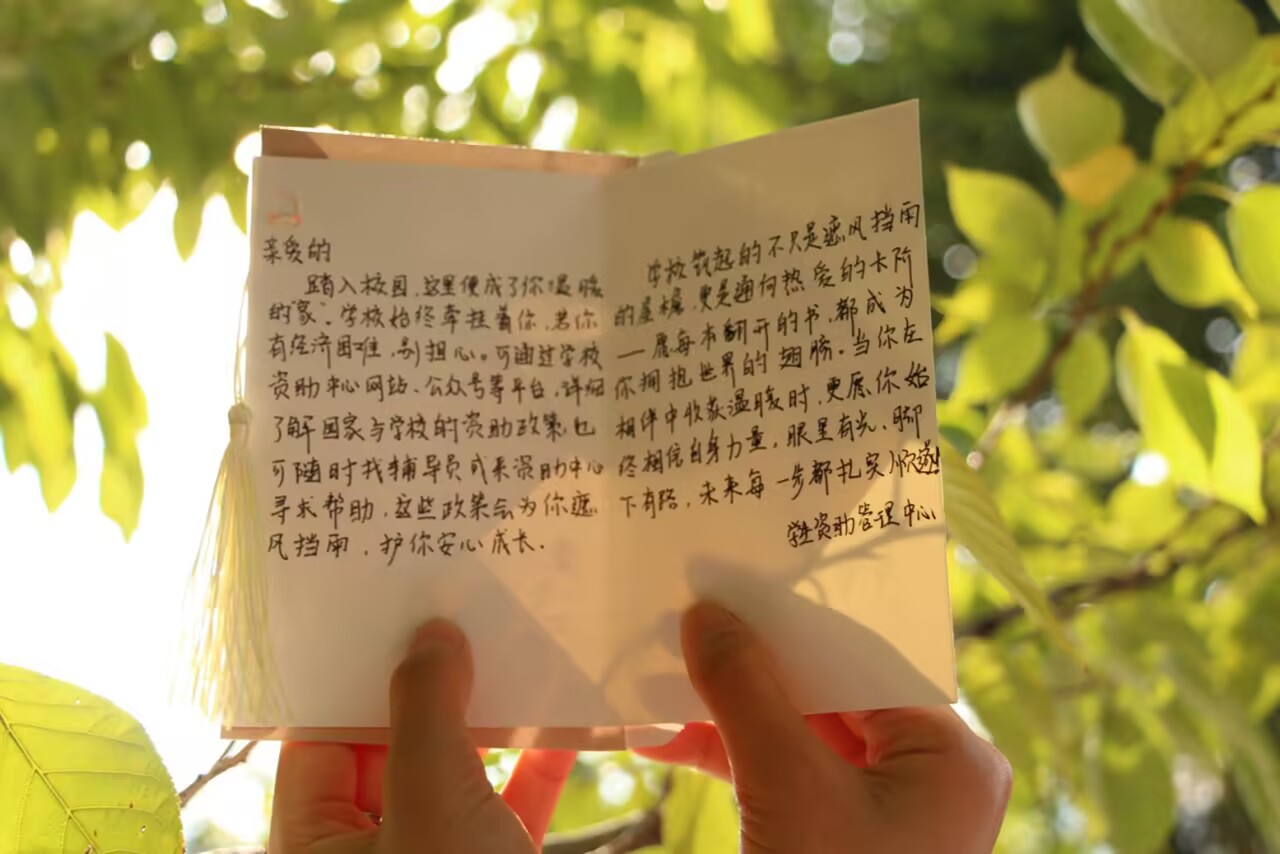 亲爱的
踏入校园，这里便成了你温暖
的"家"。学校始终牵挂着你，若你
有经济困难，别担心。可通过学校
资助中心网站、公众号等平台，详细
了解国家与学校的资助政策，也
可随时找辅导员或来资助中心
寻求帮助，这些政策会为你遮
风挡雨，护你安心成长。
学校筑起的不只是遮风挡雨
的屋檐，更是通向热爱的卡阶
——愿每本翻开的书，都成为
你拥抱世界的翅膀。当你在
相伴中收获温暖时，更愿你始
终相信自身力量，眼里有光、脚
下有路，未来每一步都扎实顺遂！
学生资助管理中心